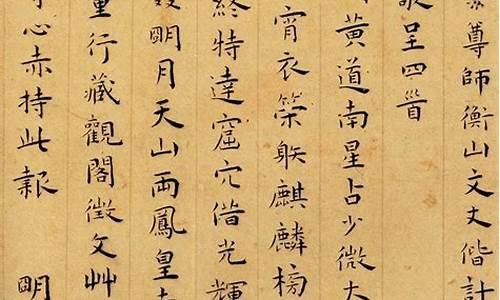 尊師衡山文丈偕計
敬呈四首
黃道南星占少微大
宵衣策䠶麒麟榜
終特達窟穴借光輝
明月天山兩鳳皇
重行藏觀閣徵文艸
心赤持此報 明